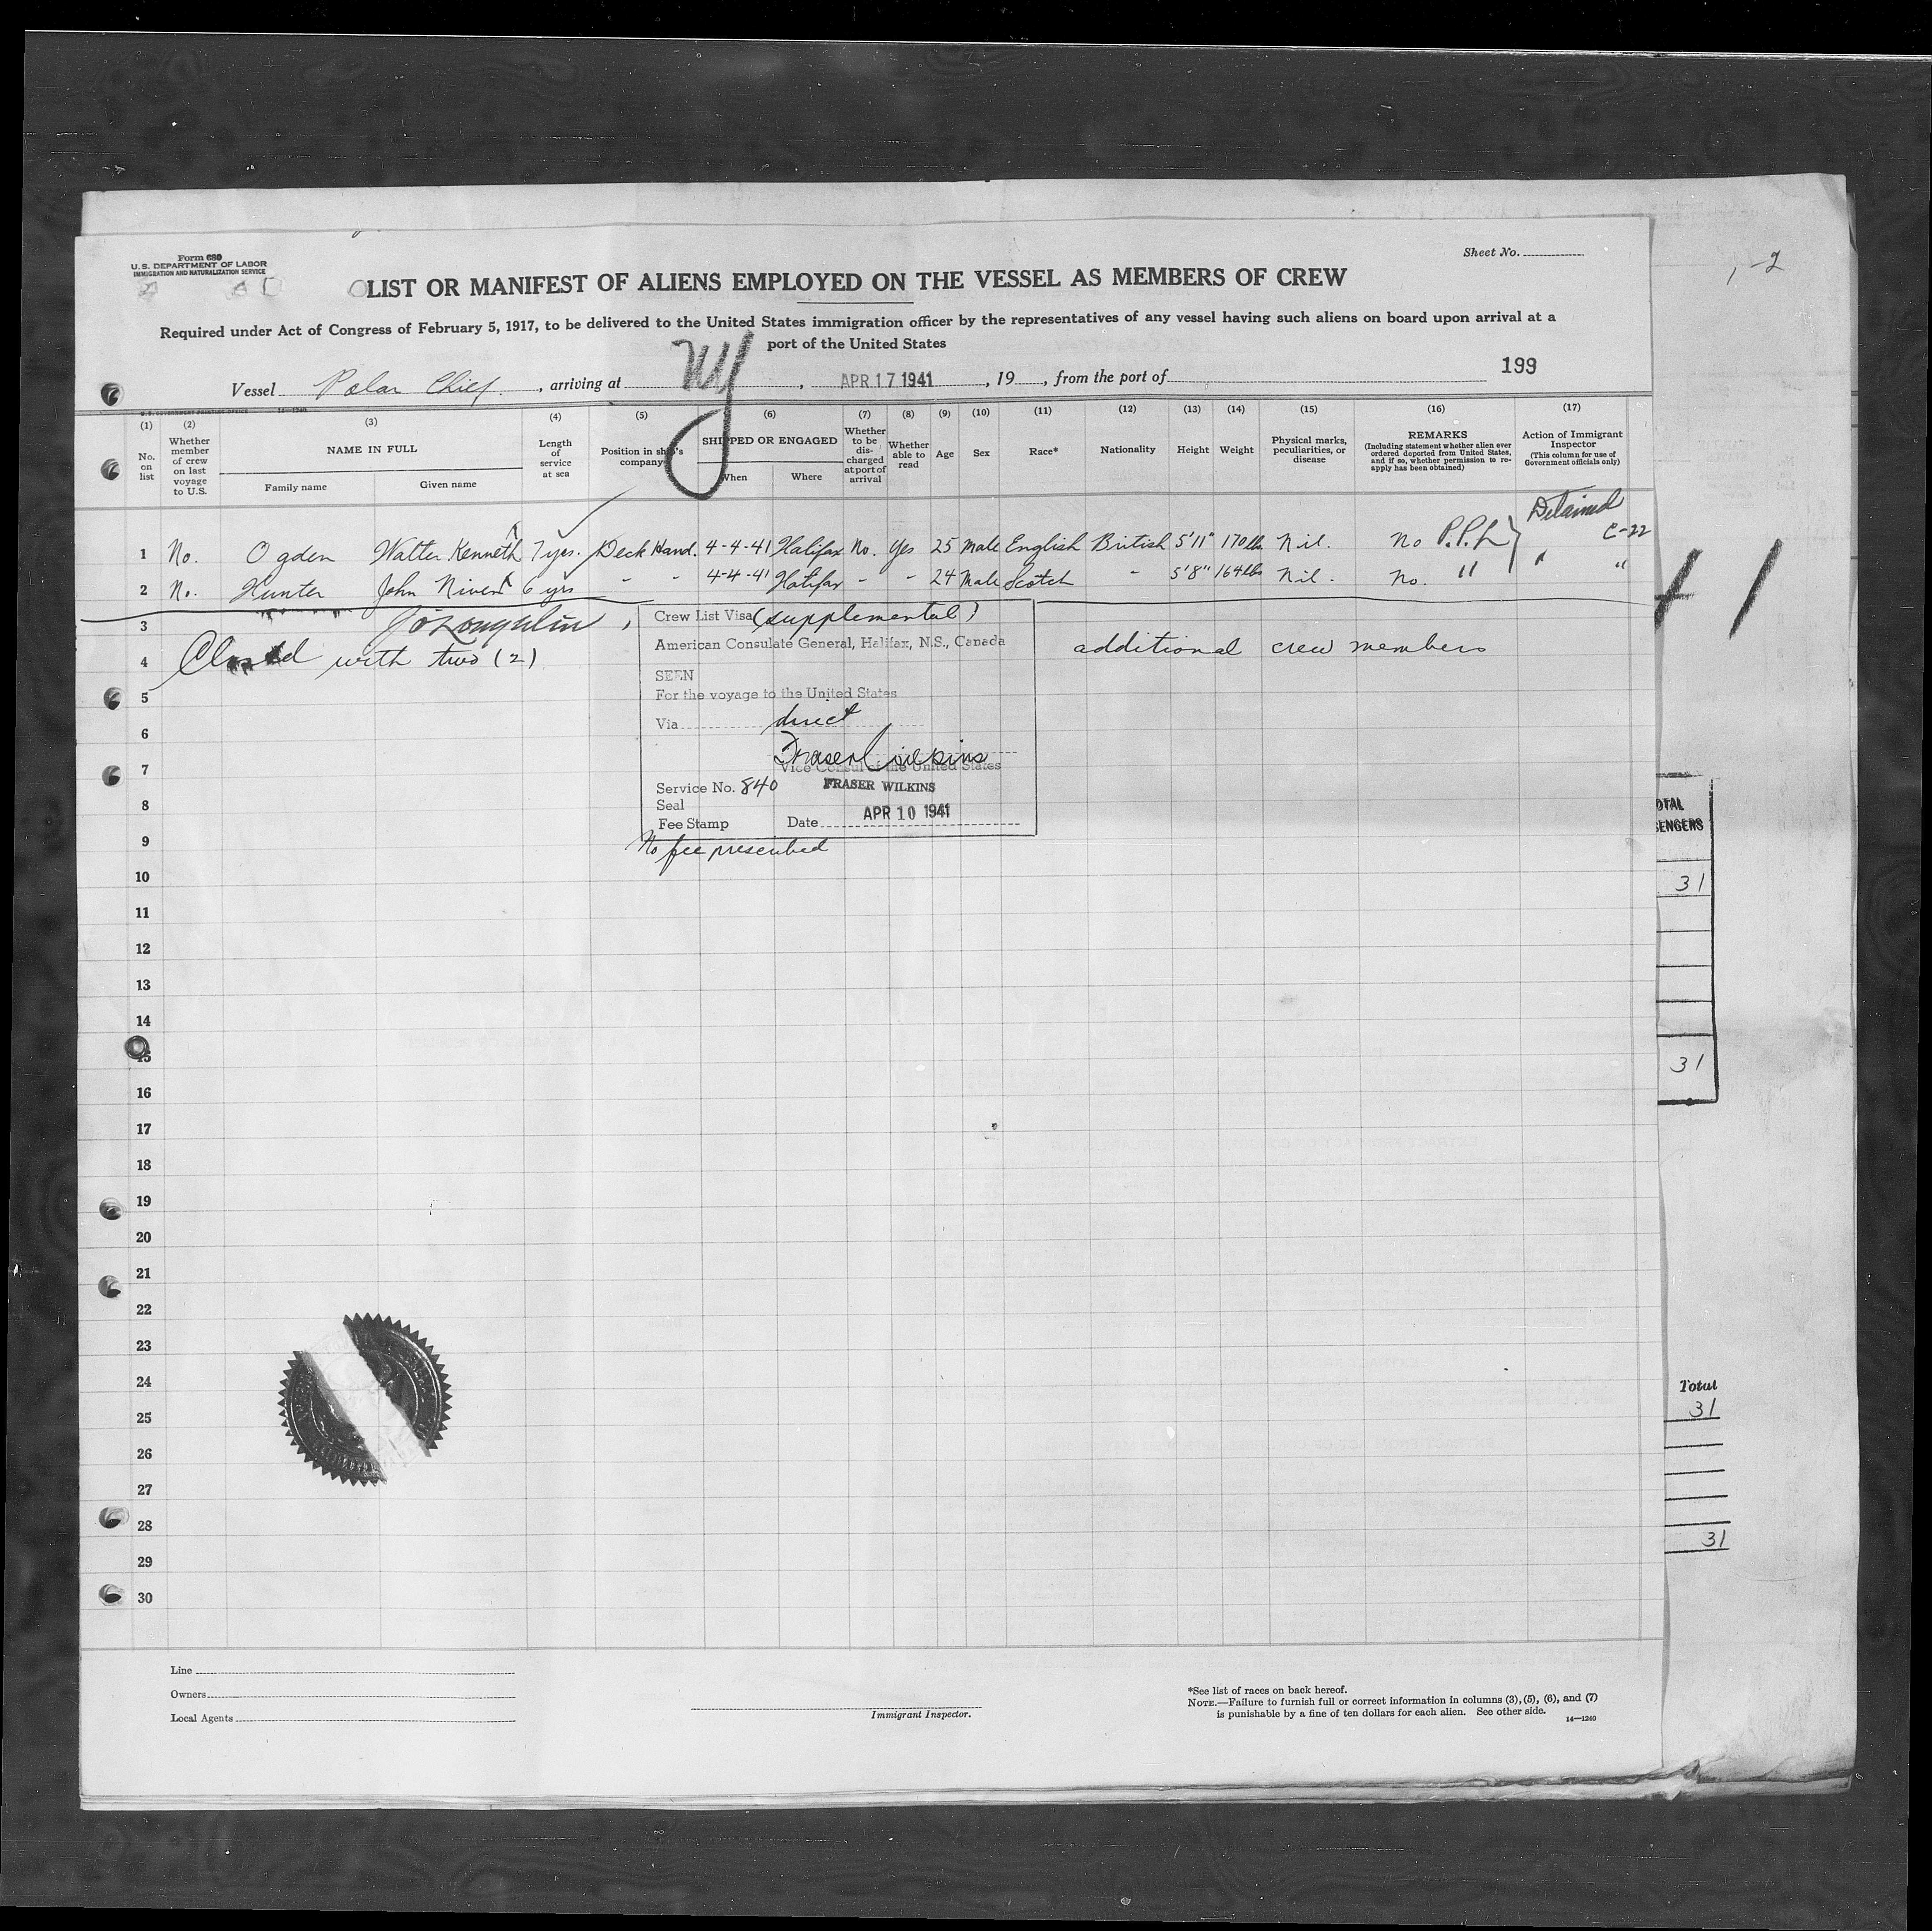 Form 680
U.S. DEPARTMENT OF LABOR
IMMIGRATION AND NATURALIZATION SERVICE
Sheet No.
1-2
LIST OR MANIFEST OF ALIENS EMPLOYED ON THE VESSEL AS MEMBERS OF CREW
Required under Act of Congress of February 5, 1917, to be delivered to the United States immigration officer by the representatives of any vessel having such aliens on board upon arrival at a
port of the United States
199
Vessel Polar Chief, arriving at NY, APR 17 1941, 19, from the port of
U.S. GOVERNMENT PRINTING OFFICE 14—1240
(1) (2) (3) (4) (5) (6) (7) (8) (9) (10) (11) (12) (13) (14) (15) (16) (17)
No. on list
Whether member of crew on last voyage to U.S.
NAME IN FULL
Family name
Given name
Length of service at sea
Position in ship's company
SHIPPED OR ENGAGED
When
Where
Whether to be discharged at port of arrival
Whether able to read
Age
Sex
Race*
Nationality
Height
Weight
Physical marks, peculiarities, or disease
REMARKS
(Including statement whether alien ever ordered deported from United States, and if so, whether permission to reapply has been obtained)
Action of Immigrant Inspector
(This column for use of Government officials only)
1 No. Ogden Walter Kenneth 7 yrs. Deck Hand. 4-4-41 Halifax No. Yes 25 Male English British 5'11" 170 lb Nil. No P.P.L } Detained C-22
2 No. Hunter John Niven 6 yrs - - 4-4-41 Halifax - - 24 Male Scotch - 5'8" 164 lbs Nil. No. " " "
3 J O'Loughlin
4 Closed with two (2) additional crew members
Crew List Visa (supplemental)
American Consulate General, Halifax, N.S., Canada
SEEN
For the voyage to the United States
Via direct
Fraser Wilkins
Vice Consul of the United States
Service No. 840 FRASER WILKINS
Seal
Fee Stamp Date APR 10 1941
No fee prescribed
5
6
7
8
9
10
11
12
13
14
15
16
17
18
19
20
21
22
23
24
25
26
27
28
29
30
41
OTAL
SENGERS
31
31
Total
31
31
Line
Owners
Local Agents
Immigrant Inspector.
*See list of races on back hereof.
NOTE.—Failure to furnish full or correct information in columns (3), (5), (6), and (7)
is punishable by a fine of ten dollars for each alien. See other side.
14—1240